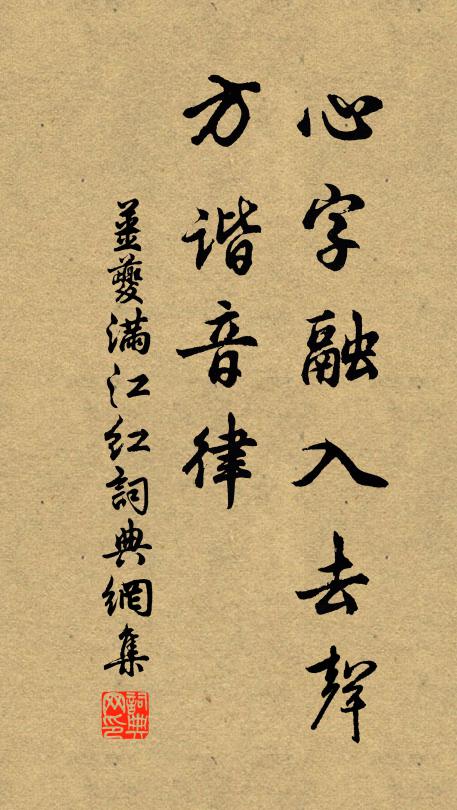 心字融入去聲
方谐音律
姜夔满江红詞典網集
詞典网印